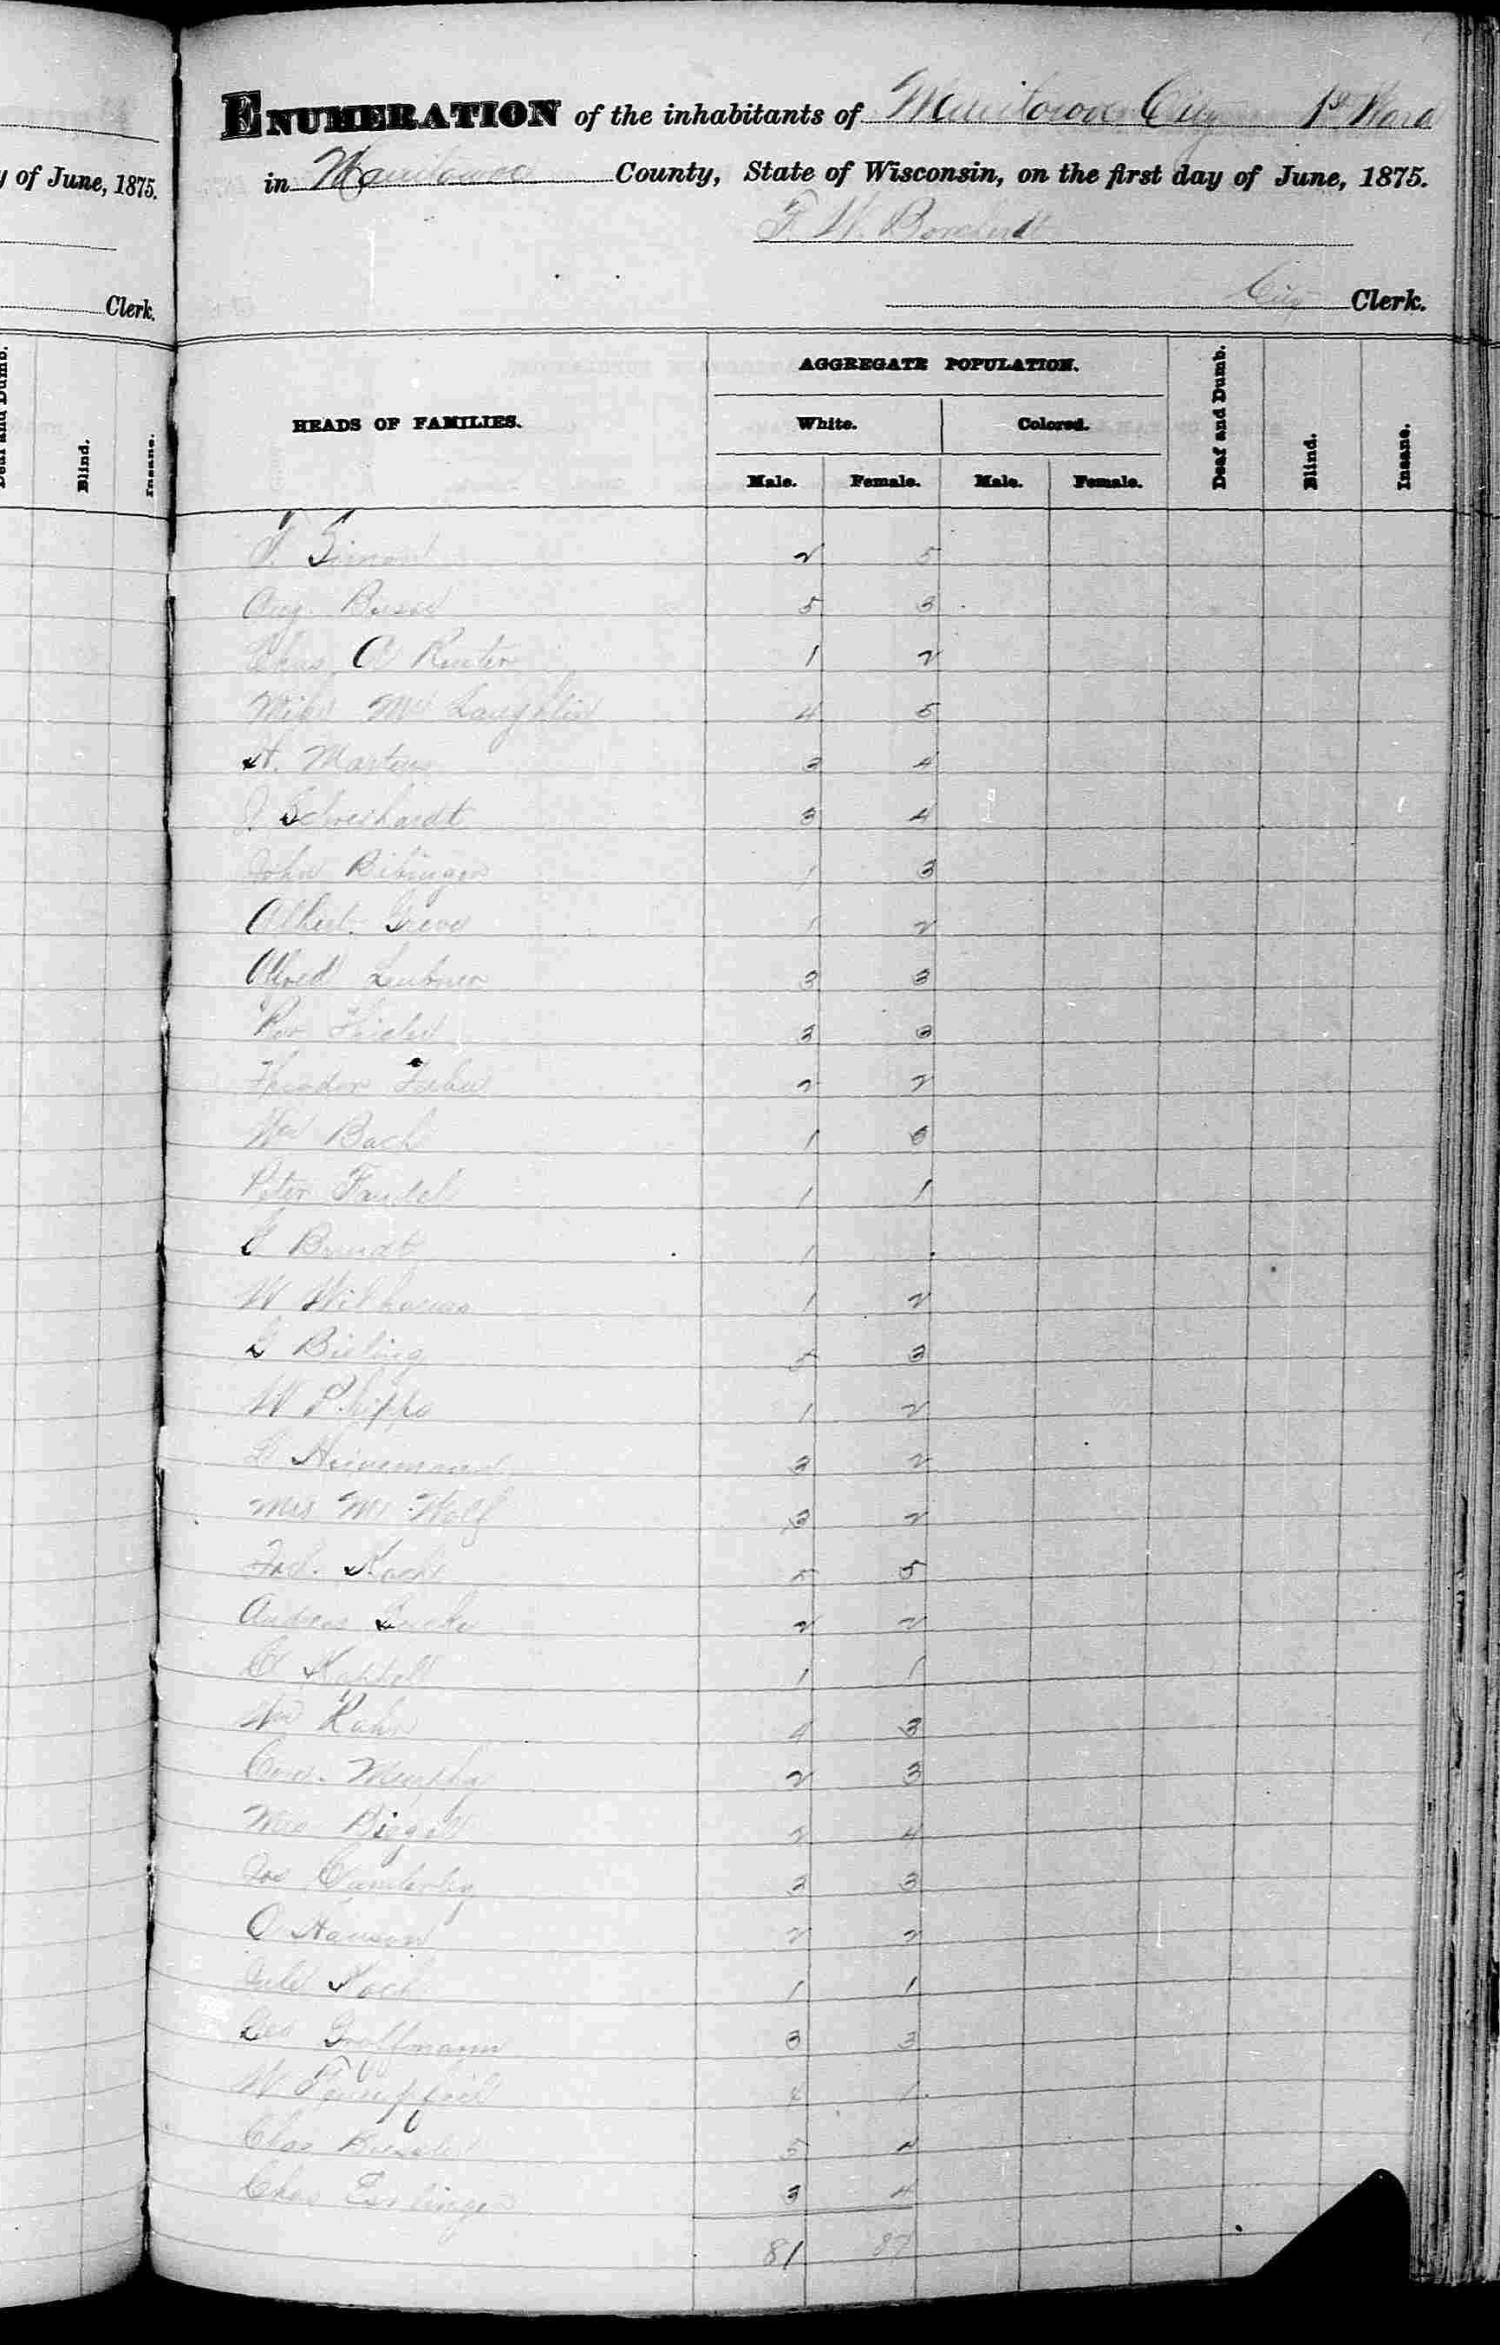 y of June, 1875.
Clerk.
Deaf and Dumb.
Blind.
Insane.
ENUMERATION of the inhabitants of Manitowoc City 1st Ward
in Manitowoc County, State of Wisconsin, on the first day of June, 1875.
F. W. Borcherdt
City Clerk.
HEADS OF FAMILIES.
AGGREGATE POPULATION.
White. Colored.
Male. Female. Male. Female.
Deaf and Dumb.
Blind.
Insane.
F. Simon 2 5
Aug. Busse 5 3
Chas A Reuter 1 2
Mike McLaughlin 4 5
A. Martens 3 4
J. Schweihardt 3 4
John Bibinger 1 3
Albert Greve 1 2
Alfred Leubner 3 3
Rev. 3 3
Theodor 2 2
Wm Bach 1 6
Peter 1 1
C Brandt 1
W Wilharms 1 2
G Bieling 5 3
W Phipps 1 2
L Heinemann 3 2
Mrs M Wolf 3 2
Fred. Koch 5 5
Andreas 2 2
C Kappell 1 1
Wm Rahr 4 3
Con. Murphy 2 3
Biegel 2 4
Jos 3 3
O Hanson 2 2
Koch 1 1
Geo Groffmann 3 3
W 4 1
Chas 5 4
Chas Esslinger 3 4
81 87